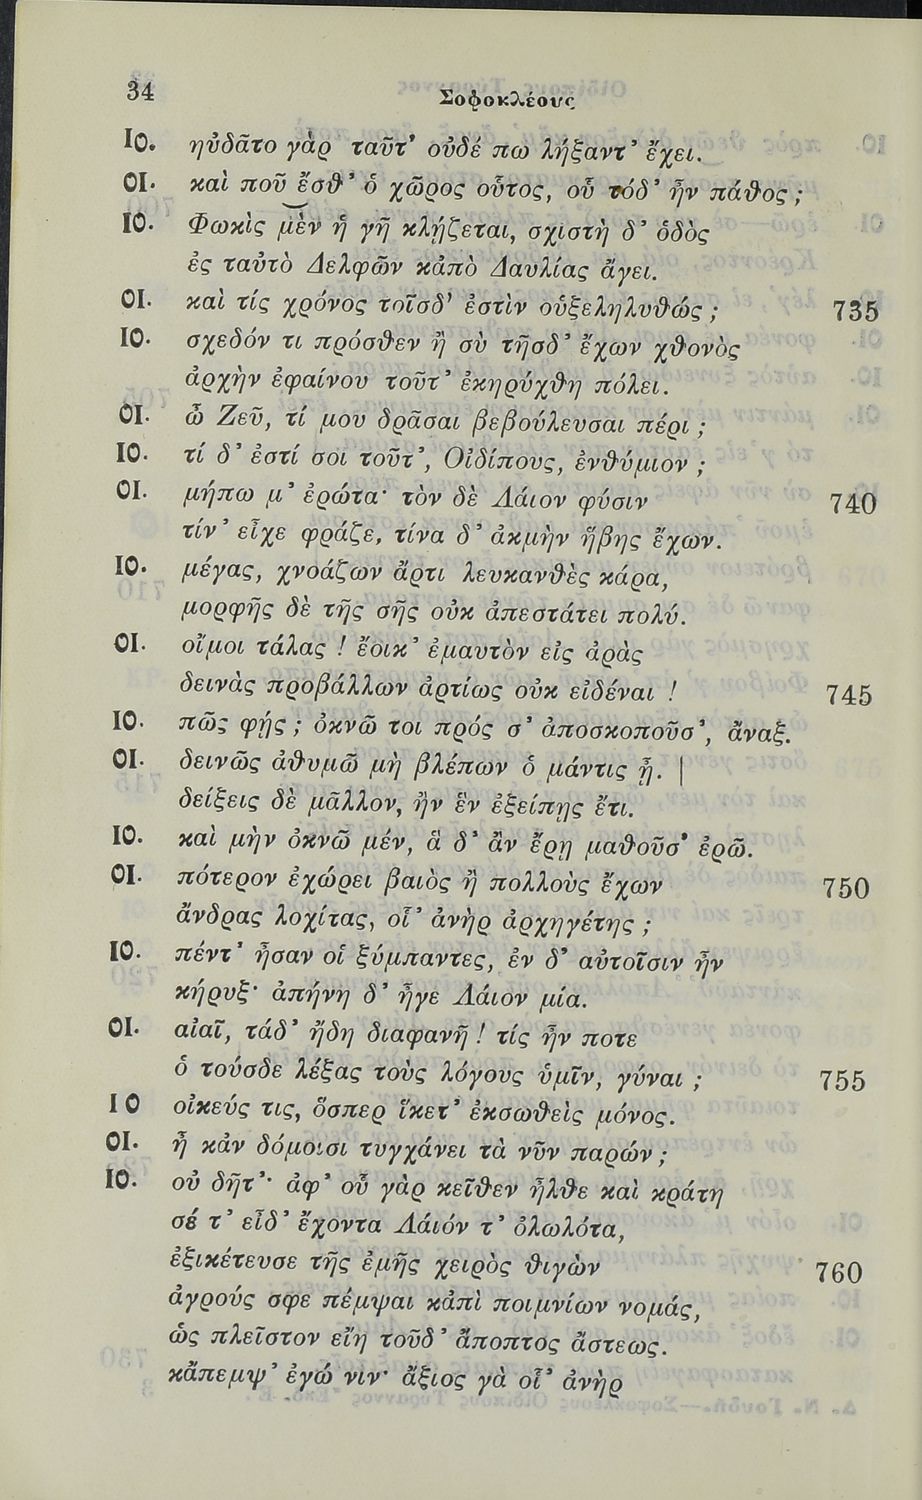 34
Σοφοκλέους
ΙΟ. ηὐδᾶτο γὰρ ταῦτ' οὐδέ πω λήξαντ' ἔχει.
ΟΙ. καὶ ποῦ ἔσθ' ὁ χῶρος οὗτος, οὗ τόδ' ἦν πάθος ;
ΙΟ. Φωκὶς μὲν ἡ γῆ κλῄζεται, σχιστὴ δ' ὁδὸς
ἐς ταὐτὸ Δελφῶν κἀπὸ Δαυλίας ἄγει.
ΟΙ. καὶ τίς χρόνος τοῖσδ' ἐστὶν οὑξεληλυθώς ; 735
ΙΟ. σχεδόν τι πρόσθεν ἢ σὺ τῆσδ' ἔχων χθονὸς
ἀρχὴν ἐφαίνου τοῦτ' ἐκηρύχθη πόλει.
ΟΙ. ὦ Ζεῦ, τί μου δρᾶσαι βεβούλευσαι πέρι ;
ΙΟ. τί δ' ἐστί σοι τοῦτ', Οἰδίπους, ἐνθύμιον ;
ΟΙ. μήπω μ' ἐρώτα· τὸν δὲ Λάιον φύσιν 740
τίν' εἶχε φράζε, τίνα δ' ἀκμὴν ἥβης ἔχων.
ΙΟ. μέγας, χνοάζων ἄρτι λευκανθὲς κάρα,
μορφῆς δὲ τῆς σῆς οὐκ ἀπεστάτει πολύ.
ΟΙ. οἴμοι τάλας ! ἔοικ' ἐμαυτὸν εἰς ἀρὰς
δεινὰς προβάλλων ἀρτίως οὐκ εἰδέναι ! 745
ΙΟ. πῶς φῄς ; ὀκνῶ τοι πρός σ' ἀποσκοποῦσ', ἄναξ.
ΟΙ. δεινῶς ἀθυμῶ μὴ βλέπων ὁ μάντις ᾖ.
δείξεις δὲ μᾶλλον, ἢν ἓν ἐξείπῃς ἔτι.
ΙΟ. καὶ μὴν ὀκνῶ μέν, ἃ δ' ἂν ἔρῃ μαθοῦσ' ἐρῶ.
ΟΙ. πότερον ἐχώρει βαιὸς ἢ πολλοὺς ἔχων 750
ἄνδρας λοχίτας, οἷ' ἀνὴρ ἀρχηγέτης ;
ΙΟ. πέντ' ἦσαν οἱ ξύμπαντες, ἐν δ' αὐτοῖσιν ἦν
κήρυξ· ἀπήνη δ' ἦγε Λάιον μία.
ΟΙ. αἰαῖ, τάδ' ἤδη διαφανῆ ! τίς ἦν ποτε
ὁ τούσδε λέξας τοὺς λόγους ὑμῖν, γύναι ; 755
ΙΟ οἰκεύς τις, ὅσπερ ἵκετ' ἐκσωθεὶς μόνος.
ΟΙ. ἦ κἀν δόμοισι τυγχάνει τὰ νῦν παρών ;
ΙΟ. οὐ δῆτ'· ἀφ' οὗ γὰρ κεῖθεν ἦλθε καὶ κράτη
σέ τ' εἶδ' ἔχοντα Λάιόν τ' ὀλωλότα,
ἐξικέτευσε τῆς ἐμῆς χειρὸς θιγὼν 760
ἀγρούς σφε πέμψαι κἀπὶ ποιμνίων νομάς,
ὡς πλεῖστον εἴη τοῦδ' ἄποπτος ἄστεως.
κἄπεμψ' ἐγώ νιν· ἄξιος γὰ οἷ' ἀνὴρ